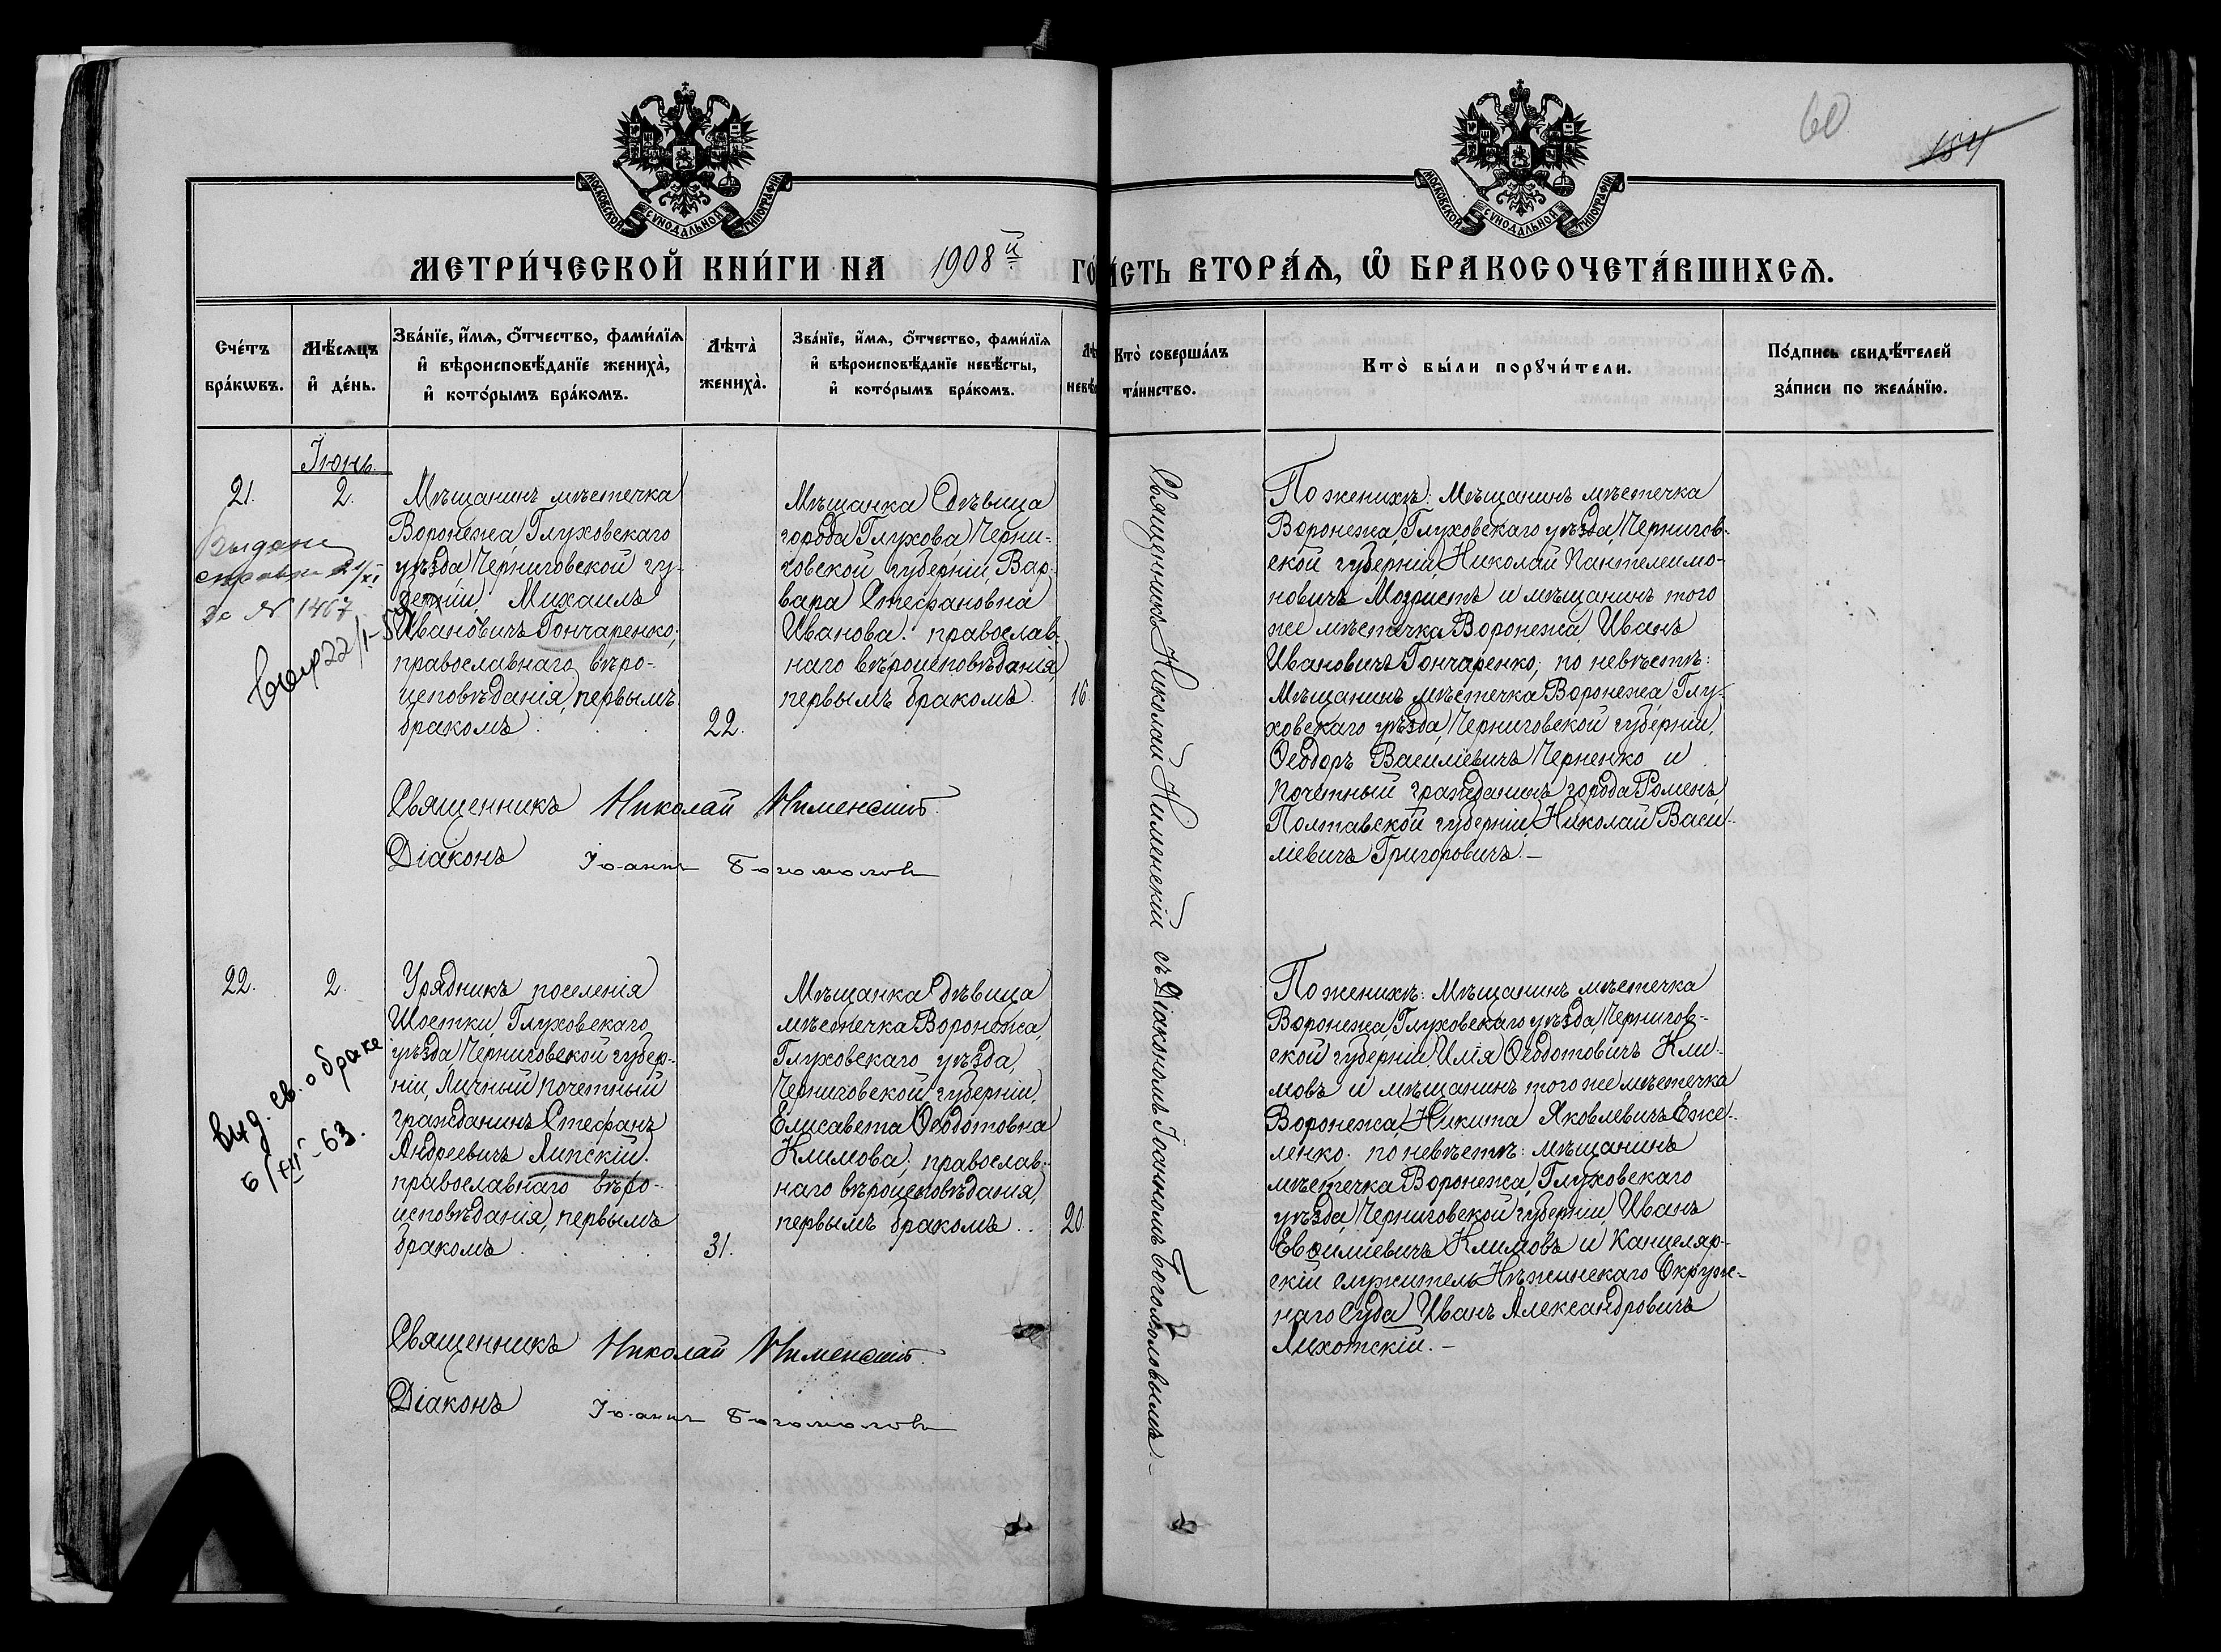 60
154
МОСКОВСКОЙ СѴНОДАЛЬНОЙ ТИПОГРАФІИ
МОСКОВСКОЙ СѴНОДАЛЬНОЙ ТИПОГРАФІИ
МЕТРИ́ЧЕСКОЙ КНИ́ГИ НА 1908й ГО
ІСТЬ ВТОРА́Ѧ, Ѽ БРАКОСОЧЕТА́ВШИХСѦ.
Сче́тъ
бра́кѡвъ.
Мѣ́сѧцъ
и҆ де́нь.
Зва́нїе, и҆́мѧ, ѻ҆́тчество, фами́лїѧ
и҆ вѣроисповѣ́данїе жениха̀,
и҆ кото́рымъ бра́комъ.
Лѣ́та̀
жениха̀.
Зва́нїе, и҆́мѧ, ѻ҆́тчество, фами́лїѧ
и҆ вѣроисповѣ́данїе невѣ́сты,
и҆ кото́рымъ бра́комъ.
Лѣ
невѣ
Кто̀ соверша́лъ
та́инство.
Кто̀ бы́ли порꙋчи́тели.
По́дпись свидѣ́телей
за́писи по жела́нїю.
Іюнь.
21.
2.
Выдана
справка 21/XI
за № 1467
22/1-5
Мѣщанинъ мѣстечка
Воронежа, Глуховскаго
уѣзда, Черниговской гу-
берніи, Михаилъ
Ивановичъ Гончаренко,
православнаго вѣро-
исповѣданія, первымъ
бракомъ
22.
Мѣщанка дѣвица
города Глухова, Черни-
говской губерніи, Вар-
вара Стефановна
Иванова. православ-
наго вѣроисповѣданія,
первымъ бракомъ.
16.
Священникъ Николай Нименскій с діакономъ Іоанномъ Богомоловымъ.–
По женихѣ: Мѣщанинъ мѣстечка
Воронежа, Глуховскаго уѣзда, Чернигов-
ской губерніи, Николай Пантелеимо-
новичъ и мѣщанинъ того
же мѣстечка Воронежа Иванъ
Ивановичъ Гончаренко; по невѣстѣ:
Мѣщанинъ мѣстечка Воронежа, Глу-
ховскаго уѣзда, Черниговской губерніи,
Ѳеодоръ Василіевичъ Черненко и
почетный гражданинъ города Роменъ,
Полтавской губерніи, Николай Васи-
ліевичъ Григоровичъ.–
Священникъ Николай Нименскій.
Діаконъ Іоаннъ Богомоловъ
22.
2.
выд. св. о браке
6/XII-63.
Урядникъ поселенія
Шостки, Глуховскаго
уѣзда, Черниговской губер-
ніи, Личный почетный
гражданинъ Стефанъ
Андреевичъ Липскій.
православнаго вѣро-
исповѣданія, первымъ
бракомъ
31.
Мѣщанка дѣвица
мѣстечка Воронежа,
Глуховскаго уѣзда,
Черниговской губерніи,
Елисавета Ѳеодотовна
Климова; православ-
наго вѣроисповѣданія,
первымъ бракомъ..
20.
По женихѣ: Мѣщанинъ мѣстечка
Воронежа, Глуховскаго уѣзда, Чернигов-
ской губерніи, Илія Ѳеодотовичъ Кли-
мовъ и мѣщанинъ того же мѣстечка
Воронежа, Никита Яковлевичъ Еже-
ленко. по невѣстѣ: мѣщанинъ
мѣстечка Воронежа, Глуховскаго
уѣзда, Черниговской губерніи, Иванъ
Евѳиміевичъ Климовъ и Канцеляр-
скій служитель Нѣжинскаго Окруж-
наго Суда Иванъ Александровичъ
Лихотскій.–
Священникъ Николай Нименскій.
Діаконъ Іоаннъ Богомоловъ